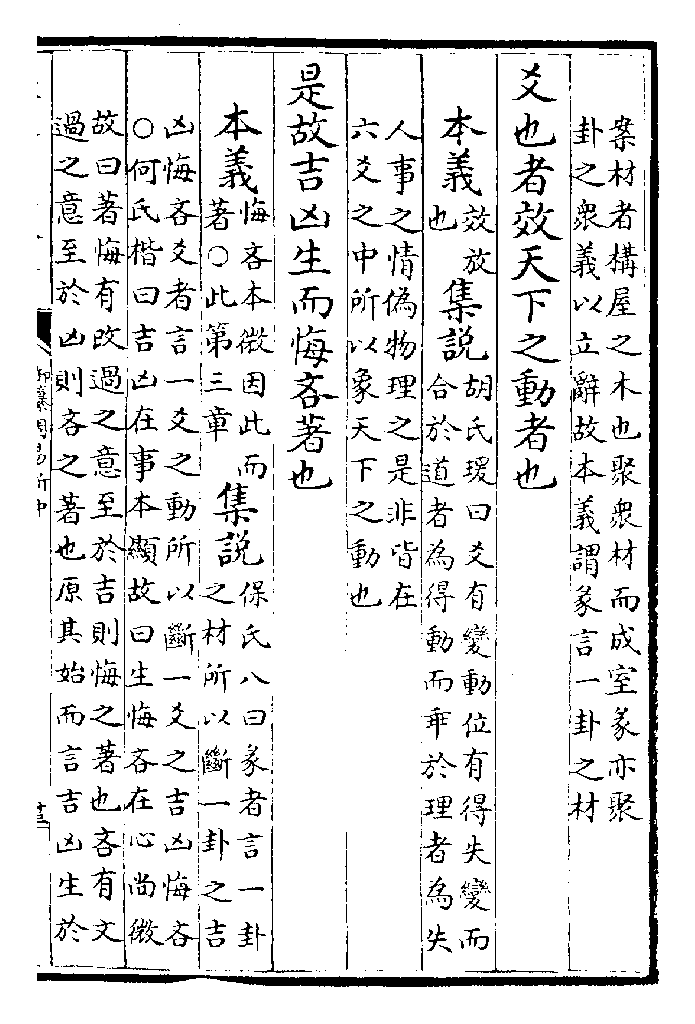 案材者構屋之木也聚衆材而成室彖亦聚
卦之衆義以立辭故本義謂彖言一卦之材
爻也者效天下之動者也
本義效放
也集説胡氏瑗曰爻有變動位有得失變而
合於道者為得動而乖於理者為失
人事之情偽物理之是非皆在
六爻之中所以象天下之動也
是故吉凶生而悔吝著也
本義悔吝本微因此而
著○此第三章集説保氏八曰彖者言一卦
之材所以斷一卦之吉
凶悔吝爻者言一爻之動所以斷一爻之吉凶悔吝
○何氏楷曰吉凶在事本顯故曰生悔吝在心尚微
故曰著悔有改過之意至於吉則悔之著也吝有文
過之意至於凶則吝之著也原其始而言吉凶生於
御纂周易折中